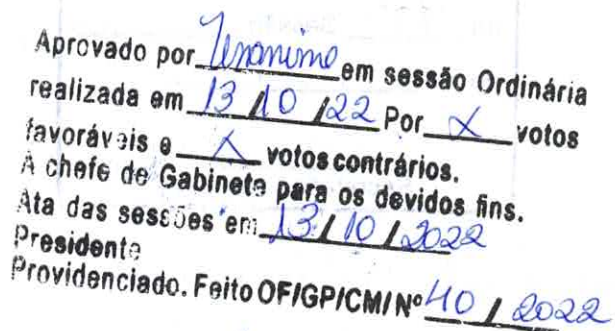 Aprovado por Unanime em sessão Ordinária
realizada em 13 / 10 / 22 Por X votos
favoráveis e X votos contrários.
A chefe de Gabinete para os devidos fins.
Ata das sessões em 13 / 10 / 2022
Presidente
Providenciado. Feito OF/GP/CMI Nº 40 / 2022